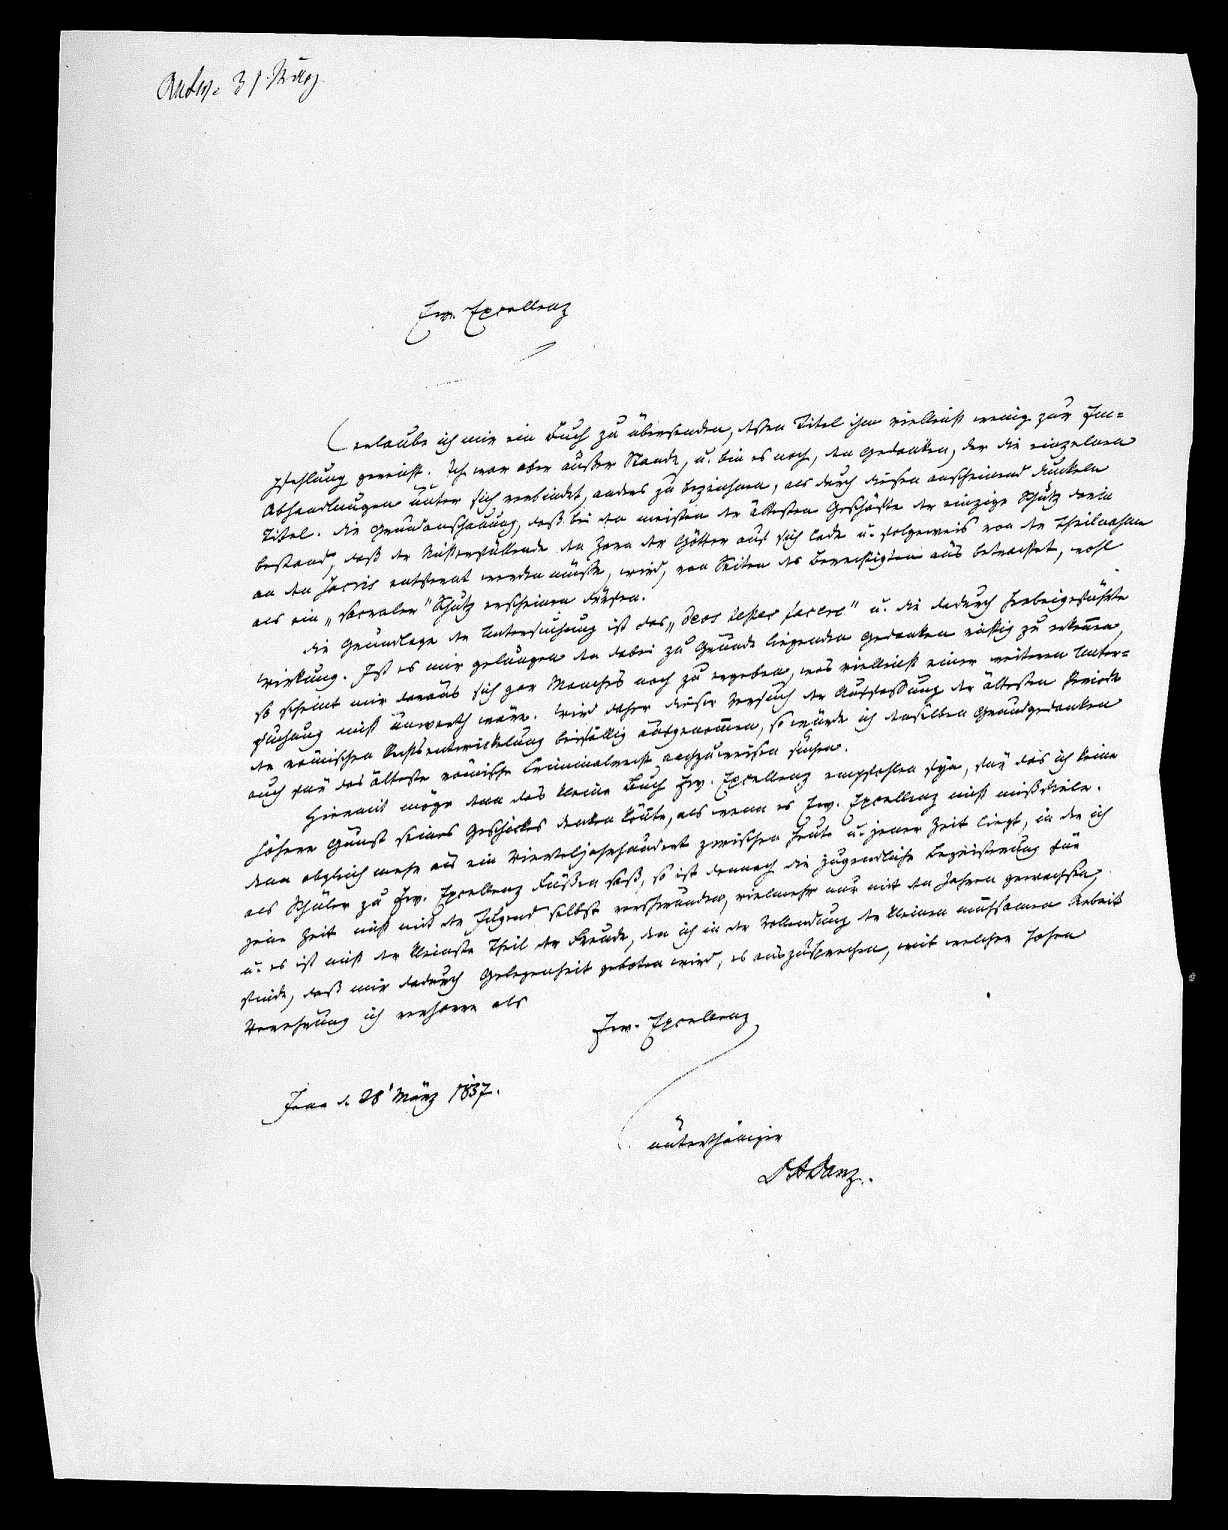 Antw. 31 März
Ew. Excellenz
erlaube ich mir ein Buch zu übersenden, dessen Titel ihm vielleicht wenig zur Em-
pfehlung gereicht. Ich war aber außer Stande, u. bin es noch, den Gedanken, der die einzelnen
Abhandlungen unter sich verbindet, anders zu bezeichnen, als durch diesen anscheinend dunkeln
Titel. Die Grundanschauung, daß bei den meisten der ältesten Geschäfte der einzige Schutz darin
bestand, daß der Nichterfüllende den Zorn der Götter auf sich lade u. folgeweis von der Theilnahme
an den sacris entfernt werden müsse, wird, von Seiten des Berechtigten aus betrachtet, wohl
als ein „sacraler" Schutz erscheinen dürfen.
Die Grundlage der Untersuchung ist das „Deos testes facere" u. die dadurch herbeigeführte
Wirkung. Ist es mir gelungen den dabei zu Grunde liegenden Gedanken richtig zu erkennen,
so scheint mir daraus sich gar Manches noch zu ergeben, was vielleicht einer weiteren Unter-
suchung nicht unwerth wäre. Wird daher dieser Versuch der Auffassung der ältesten Periode
der römischen Rechtsentwickelung beifällig aufgenommen, so würde ich denselben Grundgedanken
auch für das älteste römische Criminalrecht nachzuweisen suchen.
Hiermit möge denn das kleine Buch Ew. Excellenz empfohlen seyn, für das ich keine
höhere Gunst seines Geschickes denken könnte, als wenn es Ew. Excellenz nicht mißfiele.
Denn obgleich mehr als ein Vierteljahrhundert zwischen heute u. jener Zeit liegt, in der ich
als Schüler zu Ew. Excellenz Füßen saß, so ist dennoch die jugendliche Begeisterung für
jene Zeit nicht mit der Jugend selbst verschwunden, vielmehr nur mit den Jahren gewachsen,
u. es ist nicht der kleinste Theil der Freude, den ich in der Vollendung der kleinen mühsamen Arbeit
finde, daß mir dadurch Gelegenheit geboten wird, es auszusprechen, mit welcher hohen
Verehrung ich verharre als
Ew. Excellenz
Jena d. 28' März 1857.
unterthäniger
Danz.